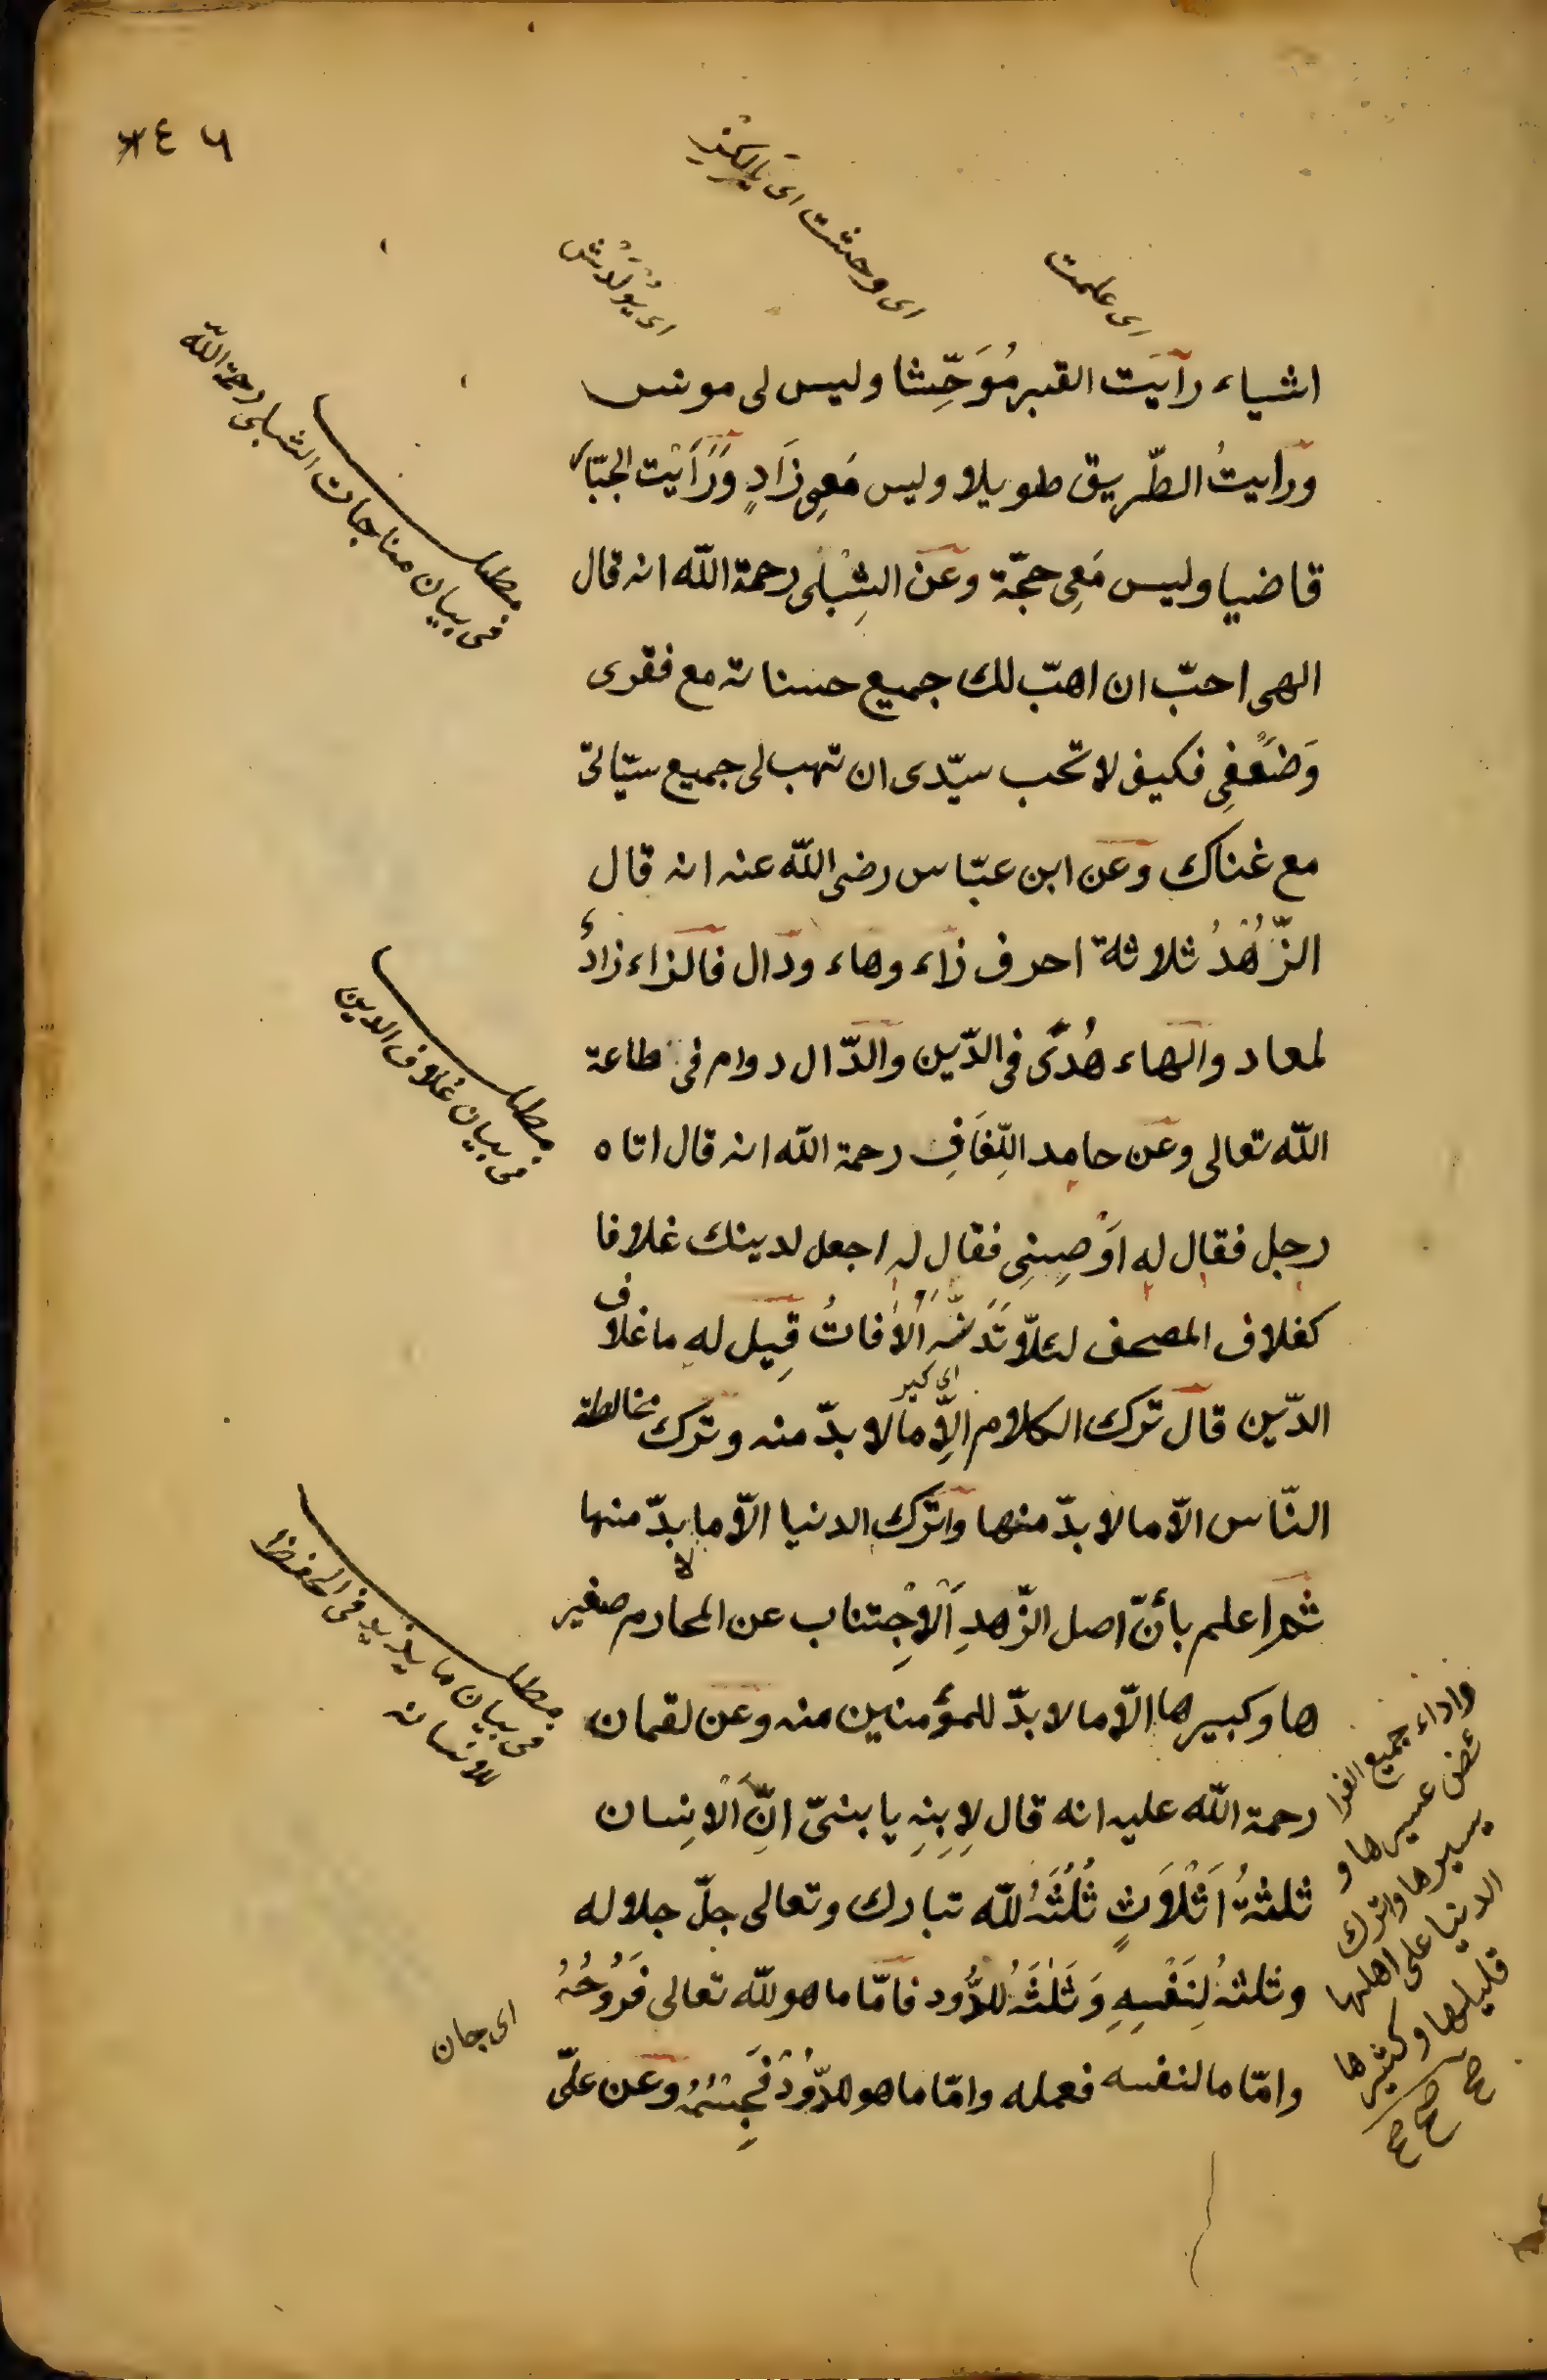 اى علمت
اى وحشت اى
اى يُولْدَش
اشياء رآيَت القبر مُوَحِّشا وليس لى مونس
ورايتُ الطّريق طويلا وليس مَعِى زَادٍ وَرَاَيْت الجبّار
قاضيا وليس مَعِى حجّة وعَن الشِبْلى رحمة اللّه انه قال
الهى احبّ ان اهبّ لك جميع حسناتى مع فقرى
وَضَعْفِى فكيف لا تحب سيّدى ان تهب لى جميع سيّاتى
مع غناك وعَن ابن عبّاس رضى اللّه عنه انه قال
الزُّهْدُ ثلاثة احرف زاء وهاء ودال فالزاء زادٌ
لمعاد والهاء هُدًى فى الدّين والدّال دوام فى طاعة
اللّه تعالى وعَن حامد اللِّفَافِ رحمة اللّه انه قال اتاه
رجل فقال له اَوْصِنِى فقال له اجعل لدينك غلافا
كغلاف المصحف لئلّا تَدَنَّسَهُ اْلآفاتُ قِيل له ما غلاف
الدّين قال ترك الكلام اِلّا ما لا بدّ منه وترك مخالطة
اى كير
النّاس الّا ما لا بدّ منها واترك الدنيا الّا ما لا بدّ منها
ثم اعلم بأنّ اصل الزّهدِ اَلْاِجْتناب عن المحارم صغير
ها وكبيرها الّا ما لا بدّ للمؤمنين منه وعَن لقمان
رحمة اللّه عليه انه قال لِاِبِنِهِ يا بنىّ اِنَّ اَلْاِنِسان
ثلثةُ اَثْلَاثٍ ثُلُثَهُ للّه تبارك وتعالى جلّ جلاله
وثلثهُ لِنَفْسِهِ وَثَلَثَهُ للدُّود فامّا ما هو للّه تعالى فَرُوحُهُ
وامّا ما لنفسه فعمله وامّا ما هو للدُّوْدْ فَجِسْمُهُ وعَن علىّ
مطلب
فى بيان مناجات الشبلى رحمة اللّه
مطلب
فى بيان غلاف الدين
مطلب
فى بيان ما يزيد فى الحفظ
للانسان
اى جان
واداء جميع الفرا
ئض عسيرها و
يسيرها واترك
الدنيا على اهلها
قليلها وكثيرها
صح صح صح